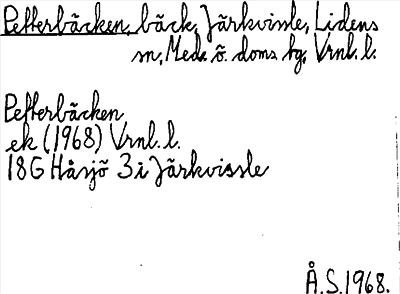 Pefterbäcken, bäck, Järkvissle, Lidens
sn, Med. ö. doms. hg, Vrnl. l.
Pefterbäcken
ek (1968) Vrnl. l.
18G Håsjö 3i Järkvissle
Å.S.1968.